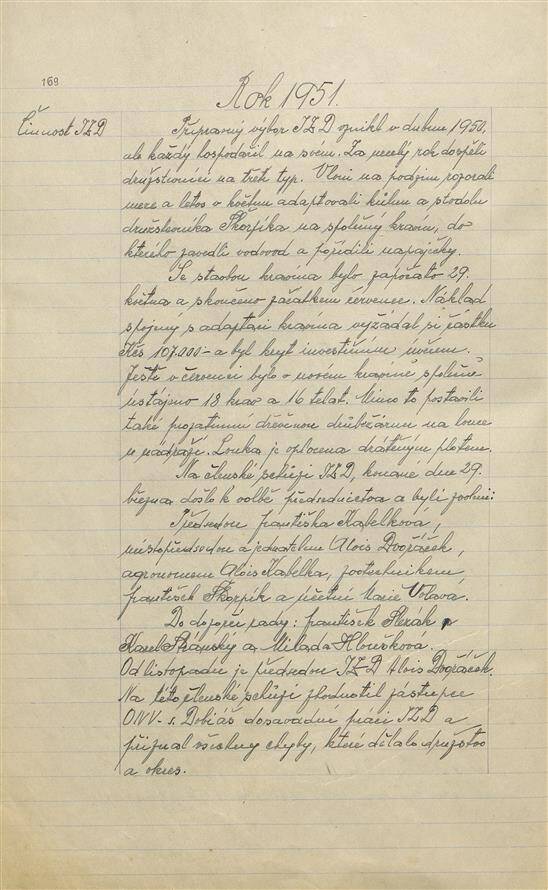 169
Rok 1951.
Činnost JZD
Přípravný výbor JZD vznikl v dubnu 1950,
ale každý hospodařil na svém. Za necelý rok dospěli
družstevníci na třetí typ. Vloni na podzim rozorali
meze a letos v květnu adaptovali kůlnu a stodolu
družstevníka Škorpíka na společný kravín, do
kterého zavedli vodovod a pořídili napaječky.
Se stavbou kravína bylo započato 29.
května a skončeno začátkem července. Náklad
spojený s adaptací kravína vyžádal si částku
Kčs 107.000- a byl kryt investičním úvěrem.
Ještě v červenci bylo v novém kravíně společně
ustájeno 18 krav a 16 telat. Mimo to postavili
také prozatimní dřevěnou drůbežárnu na louce
u nádraží. Louka je oplocena drátěným plotem.
Na členské schůzi JZD, konané dne 29.
března došlo k volbě předsednictva a byli zvoleni:
Předsedou Františka Kabelková,
místopředsedou a jednatelem Alois Dvořáček,
agronomem Alois Kabelka, zootechnikem
František Škorpík a účetní Marie Volavá.
Do dozorčí rady: František Slezák
Karel a Milada Hloušková.
Od listopadu je předsedou JZD Alois Dvořáček.
Na této členské schůzi zhodnotil zástupce
ONV - s. Dobiáš dosavadní práci JZD a
přiznal všechny chyby, které dělalo družstvo
a okres.